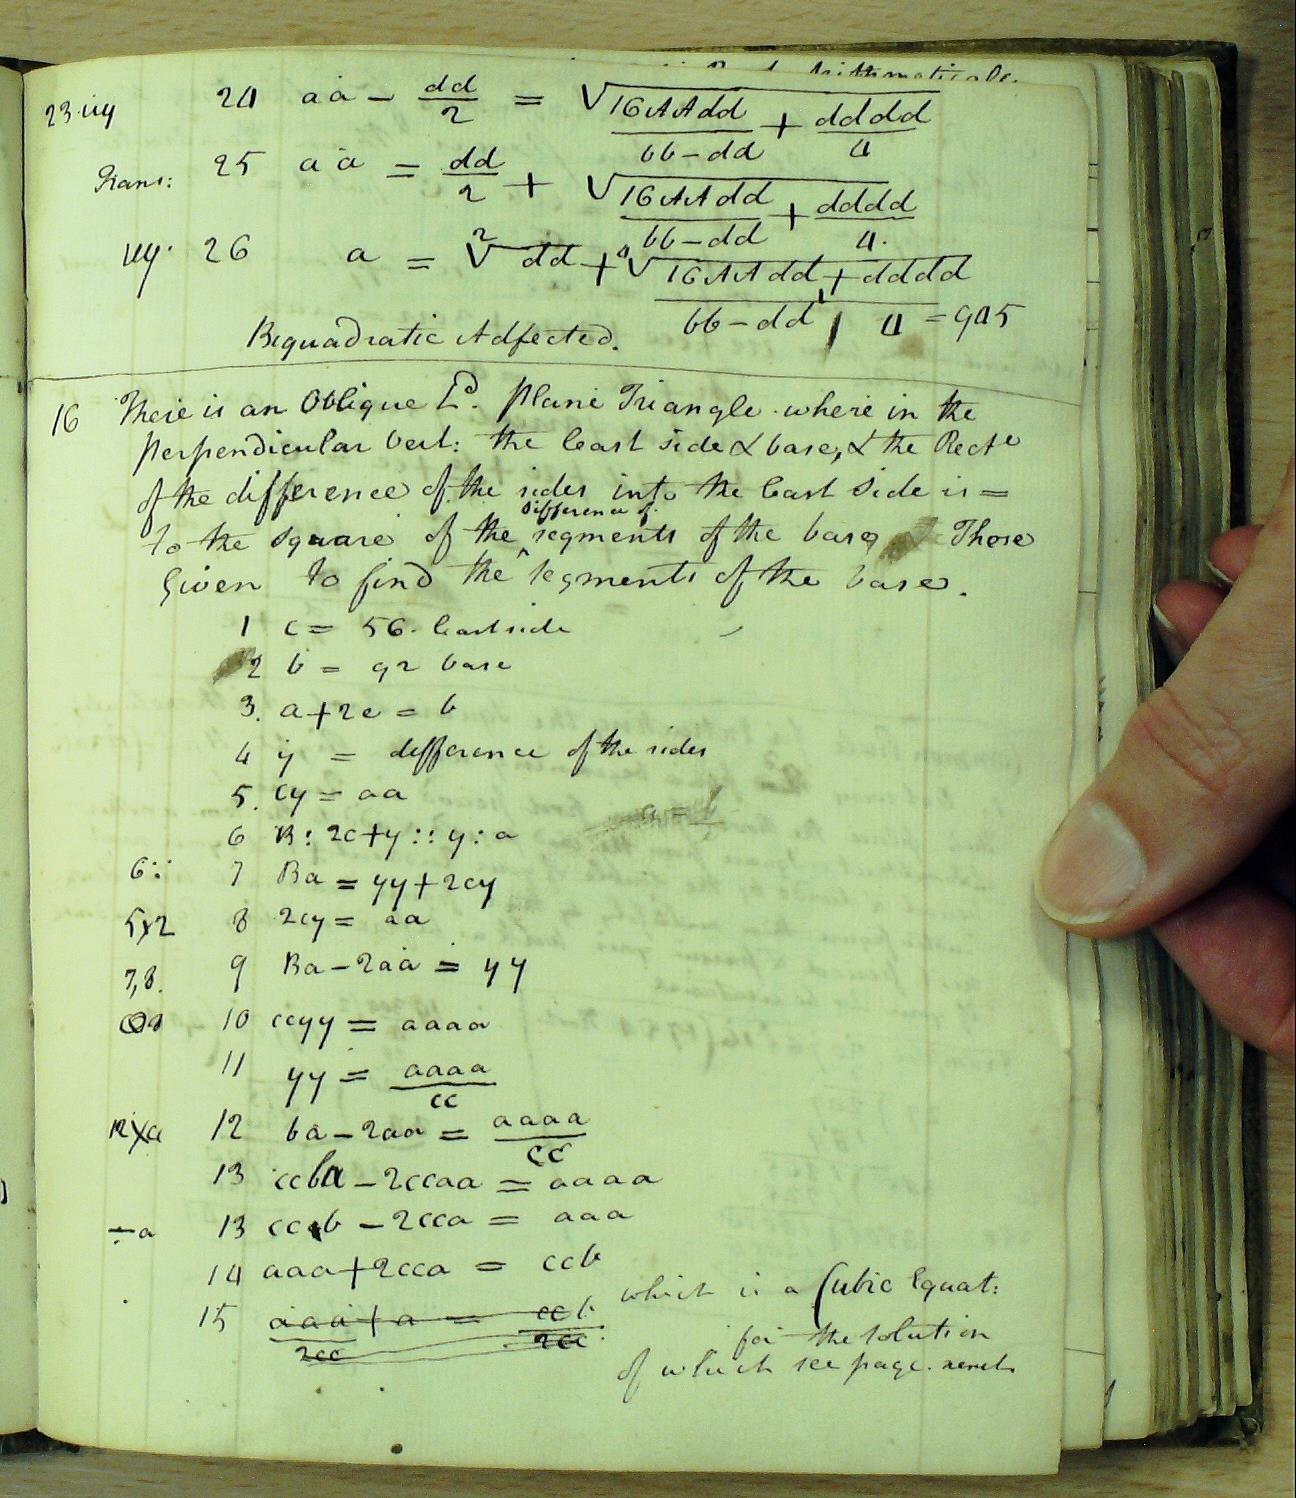 Arithmetically.
23 uy 24 aa - dd/2 = √16AAdd/bb-dd + dddd/4
Trans: 25 aa = dd/2 + √16AAdd/bb-dd + dddd/4.
uy. 26 a = ²√dd + ⁴√16AAdd + dddd/bb-dd, 4 = 945
Biquadratic Adfected.
16 There is an Oblique Ld. Plane Triangle where in the
Perpendicular Vert: the least side & base, & the Recte
of the difference of the sides into the least side is =
difference of
to the square of the ^ segments of the base Those
Given to find the segments of the base.
1 c = 56. least side
2 b = 92 base
3. a+2e = b
4 y = difference of the sides
5. cy = aa
a = b
6 B : 2c+y :: y : a
6:: 7 Ba = yy+2cy
5x2 8 2cy = aa
7,8. 9 Ba-2aa = yy
10 ccyy = aaaa
11 yy = aaaa/cc
12xa 12 ba-2aa = aaaa/cc
13 ccba-2ccaa = aaaa
÷a 13 ccb-2cca = aaa
14 aaa+2cca = ccb
which is a Cubic Equat:
15 aaa/2cc + a = ccb/2cc
for the solution
of which see page